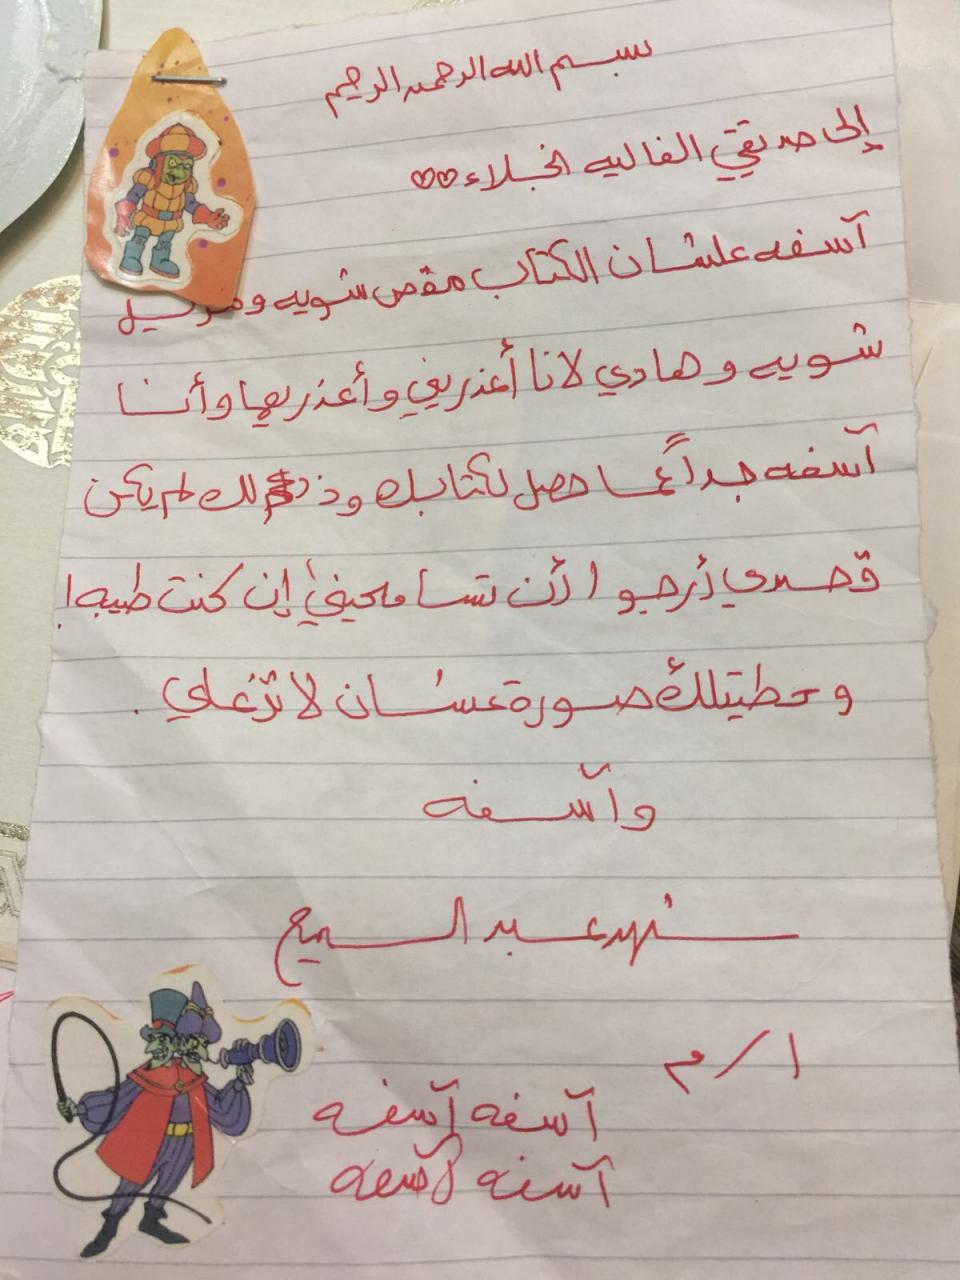 بسم الله الرحمن الرحيم
إلى صديقتي الغاليه الخبلاء ♡♡
آسفه علشان الكتاب مقص شويه
شويه وهادي لانا أعذريني وأعذريها وأنا
آسفه جداً عما حصل لكتابك وذلك لم يكن
قصدي أرجوا أن تسامحيني إن كنت طيبه!
وحطيتلك صورة عشان لا تزعلي.
وآسفه
عبد السميع
ا/م
آسفه آسفه
آسفه لآصفه